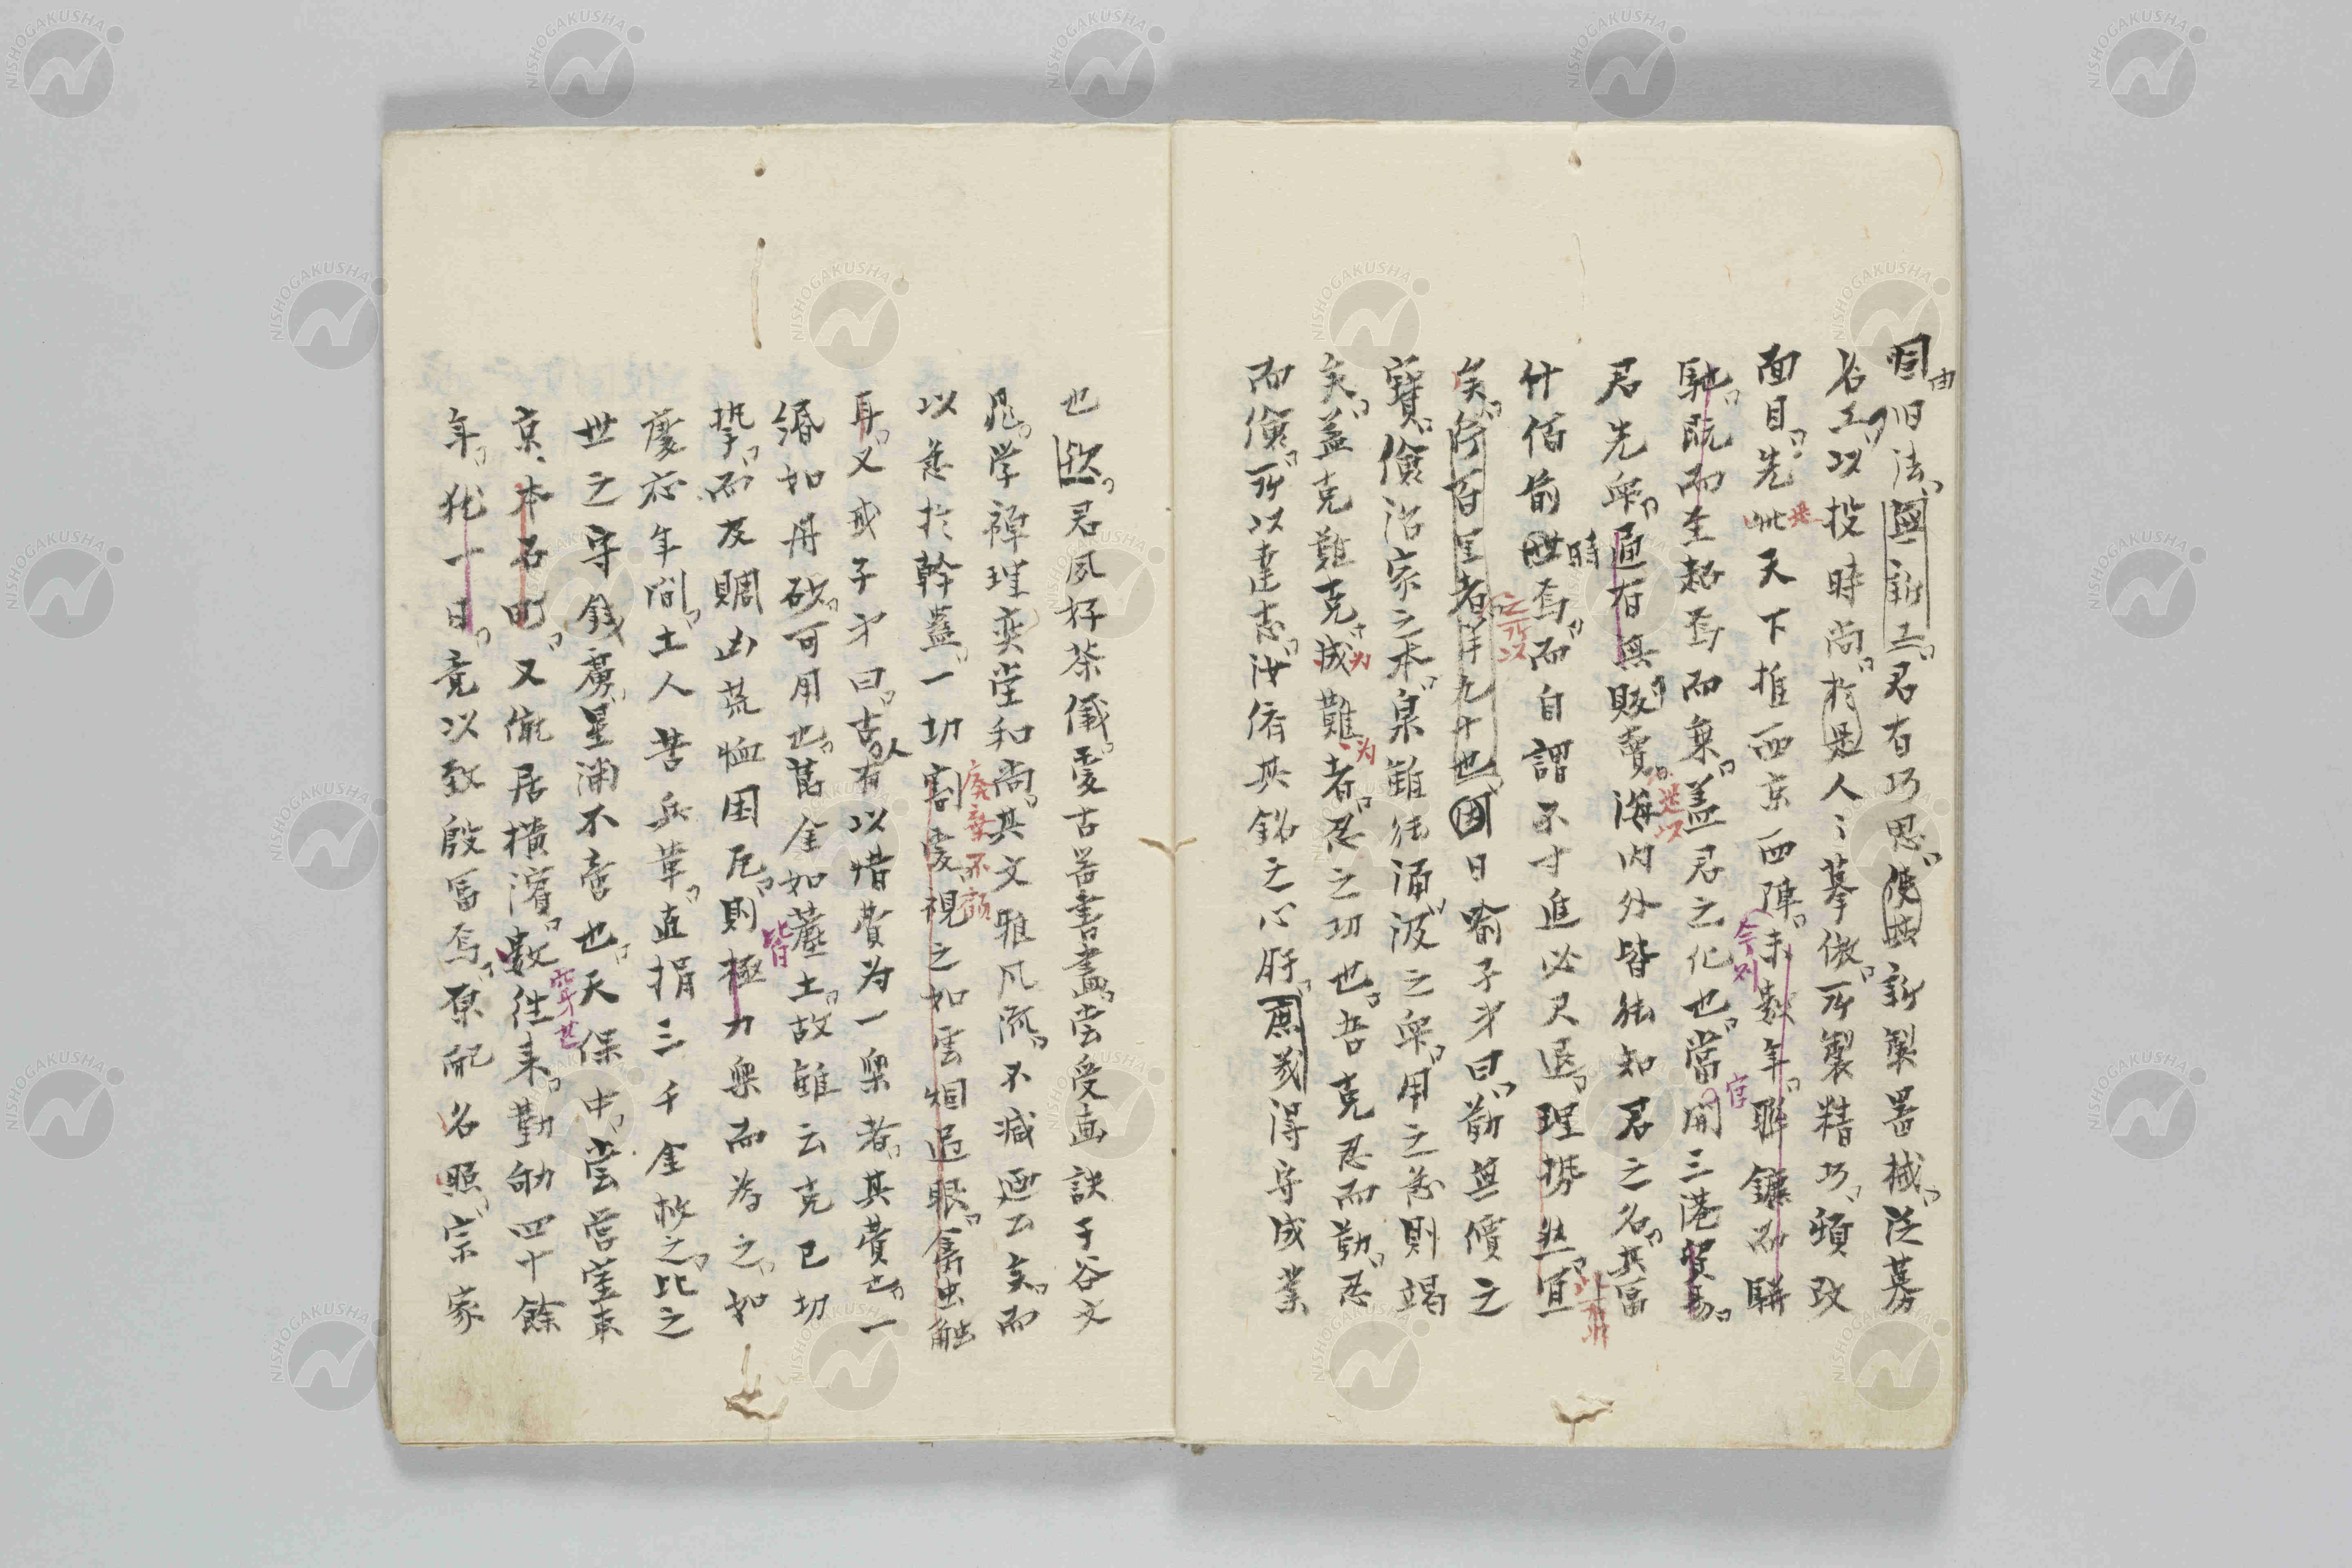 旧法君有巧思新製器械泛募
名工以投時尚於是人々摹倣所製精巧頓改
面目先此天下推西京西陣未数年聯鑣而駢
馳既而全起焉而棄蓋君之化也當開三港貿易
君先衆通有無販賣海内外皆能知君之名其富
什佰前世焉而自謂不才進必又退理勢然宜
矣行百里者半九十也因日喻子弟曰勤無價之
寶儉治家之本泉雖能涌汲之衆用之急則竭
矣蓋克難克成難者忍之功也吾克忍而勤忍
而儉所以達志汝儕其銘之心肝庶幾得守成業
也君夙好茶儀愛古器書畫嘗受画訣于谷文
晁学禅理奕堂和尚其文雅風流不減迂云矣而
以急於幹蠱一切割愛視之如雲烟過眼舊虫触
耳又戒子弟曰古人有以惜費為一樂者其費也一
緡如丹砂可用也萬金如塵土故雖云克已切
摯而及賙凶荒恤困厄則極力樂而為之如
慶応年間土人苦兵革直捐三千金救之比之
世之守錢虜星淵不啻也天保中嘗営堂東
京本石町又僦居横濱數往来勤劬四十餘
年猶一日竟以致殷冨焉原配名照宗家
由
其
今則
官
是以
時
之所以
为
为
廃棄不顧
人
皆
NISHOGAKUSHA